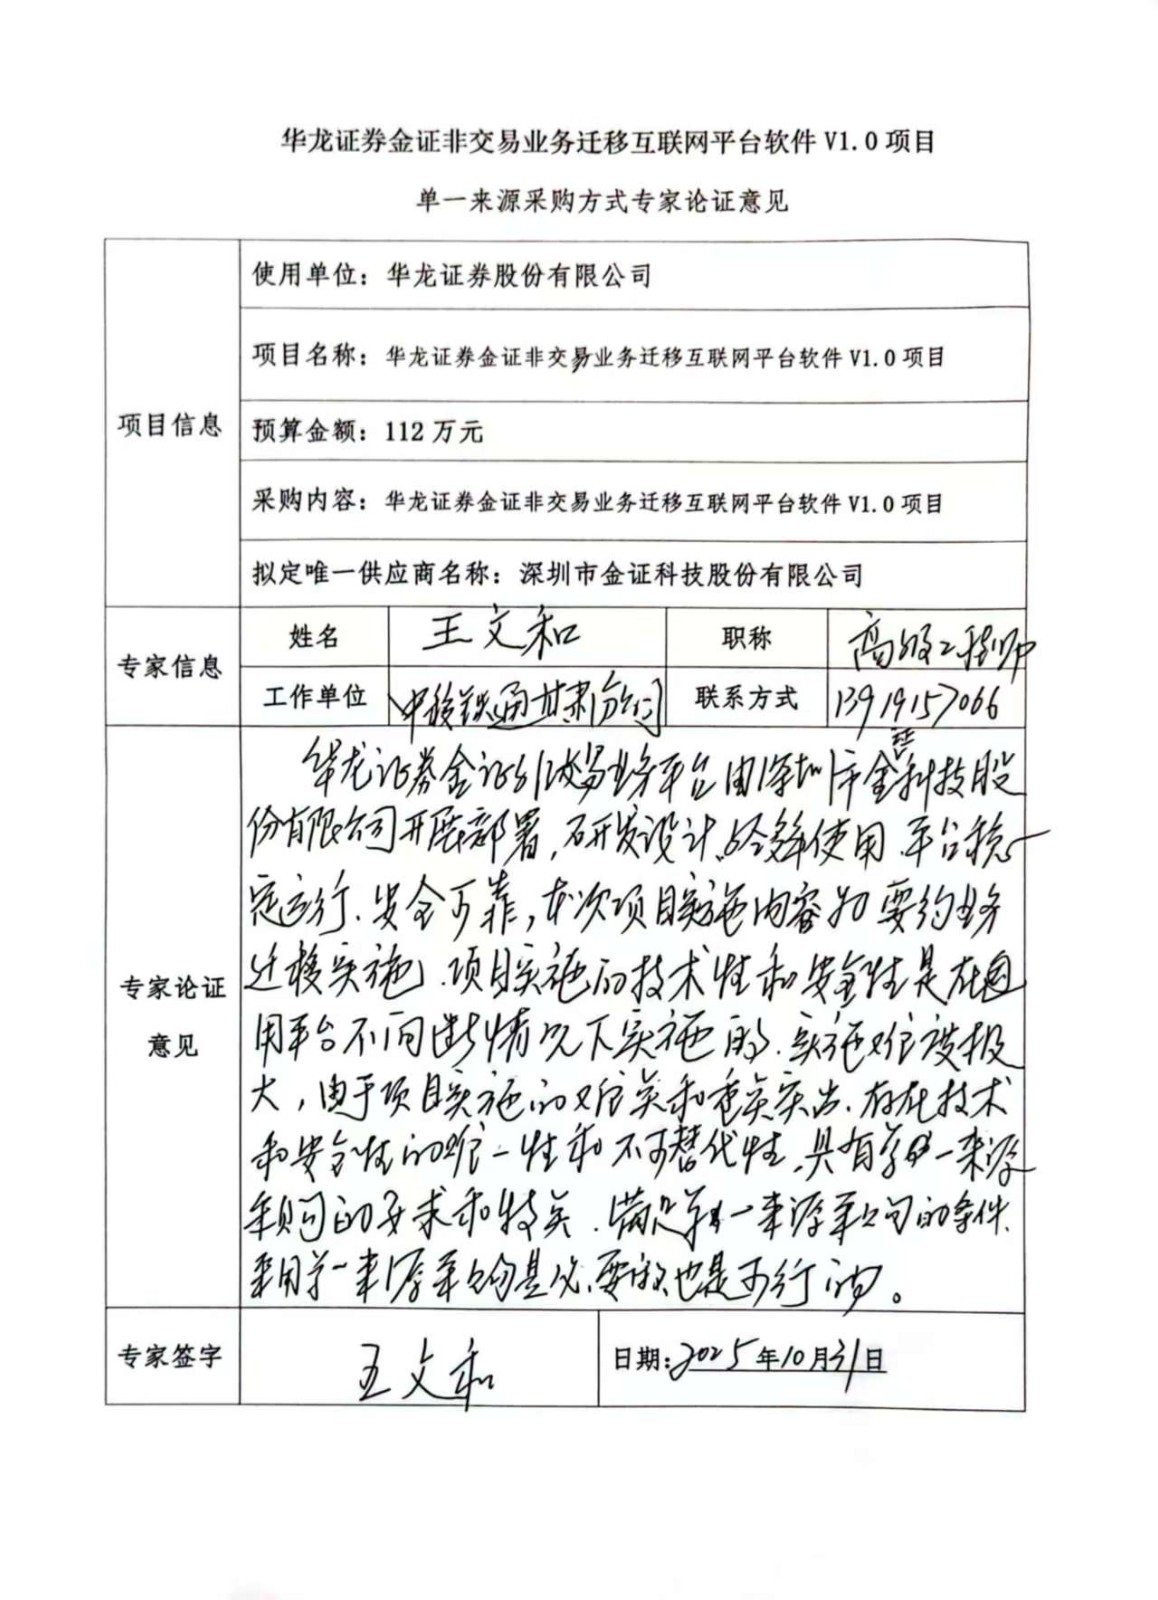 华龙证券金证非交易业务迁移互联网平台软件 V1.0 项目
单一来源采购方式专家论证意见
项目信息
使用单位：华龙证券股份有限公司
项目名称：华龙证券金证非交易业务迁移互联网平台软件 V1.0 项目
预算金额：112 万元
采购内容：华龙证券金证非交易业务迁移互联网平台软件 V1.0 项目
拟定唯一供应商名称：深圳市金证科技股份有限公司
专家信息
姓名 王文和 职称 高级工程师
工作单位 中移铁通甘肃分公司 联系方式 13919157066
专家论证
意见
华龙证券金证非交易业务平台由深圳市金证科技股
份有限公司开展部署，研发设计、经多年使用、平台稳
定运行、安全可靠，本次项目实施内容为要约业务
迁移实施，项目实施的技术性和安全性是在
用平台不间断情况下实施的、实施难度极
大，由于项目实施的难点和重点突出、存在技术
和安全性的唯一性和不可替代性，具有单一来源
采购的要求和特点、满足单一来源采购的条件、
采用单一来源采购是必要的也是可行的。
专家签字 王文和 日期：2025 年 10 月 31 日